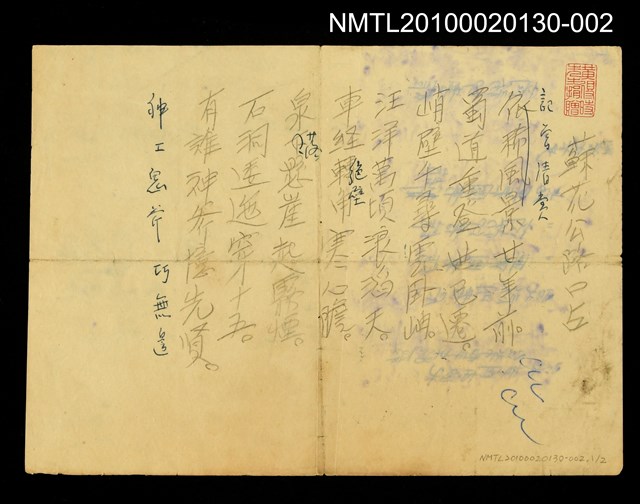 NMTL20100020130-002
蘇花公路口占
記曾清賞
依稀風景廿年前。
蜀道重登世已遷。
峭壁千尋雲卧岫。
汪洋萬頃浪拍天。
車經轉角寒心膽。
絕壁
泉 懸崖起霧煙。
石洞逶迤穿十五。
有誰神斧憶先贤。
神工鬼斧巧無邊
NMTL20100020130-002 1/2